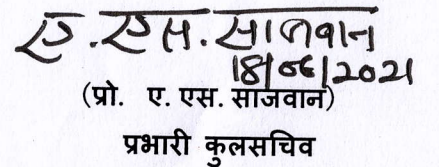 ए. एस. साजवान
18/06/2021
(प्रो. ए. एस. साजवान)
प्रभारी कुलसचिव